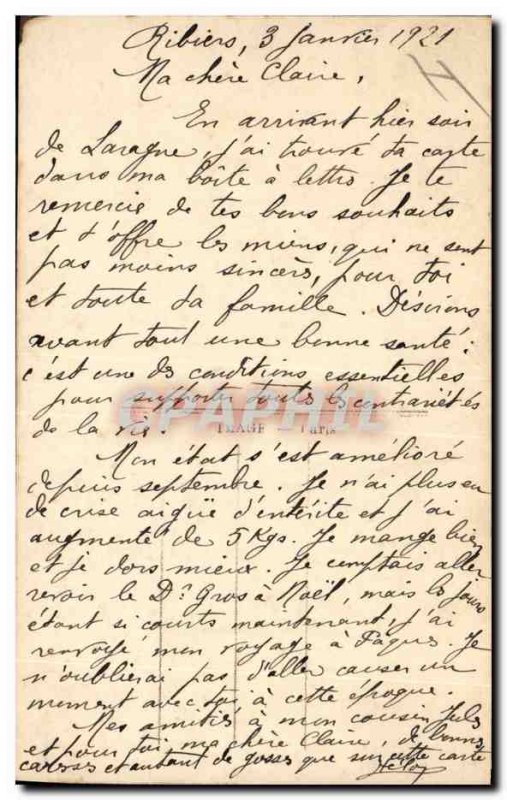 Ribiers, 3 Janvier 1921
Ma chère Claire,
En arrivant hier soir
de Laragne, j'ai trouvé ta carte
dans ma boîte à lettres. Je te
remercie de tes bons souhaits
et t'offre les miens, qui ne sont
pas moins sincères, pour toi
et toute ta famille. Désirons
avant tout une bonne santé :
c'est une des conditions essentielles
pour supporter toutes les contrariétés
de la vie.
CPAPHIL
IMAGE - Paris
Mon état s'est amélioré
depuis septembre. Je n'ai plus eu
de crise aigüe d'entérite et j'ai
augmenté de 5 Kgs. Je mange bien
et je dors mieux. Je comptais aller
revoir le Dr Gros à Noël, mais les jours
étant si courts maintenant, j'ai
renvoyé mon voyage à Pâques. Je
n'oublierai pas d'aller causer un
moment avec toi à cette époque.
Mes amitiés à mon cousin Jules
et pour toi, ma chère Claire, de bonnes
caresses et autant de gosses que sur cette carte